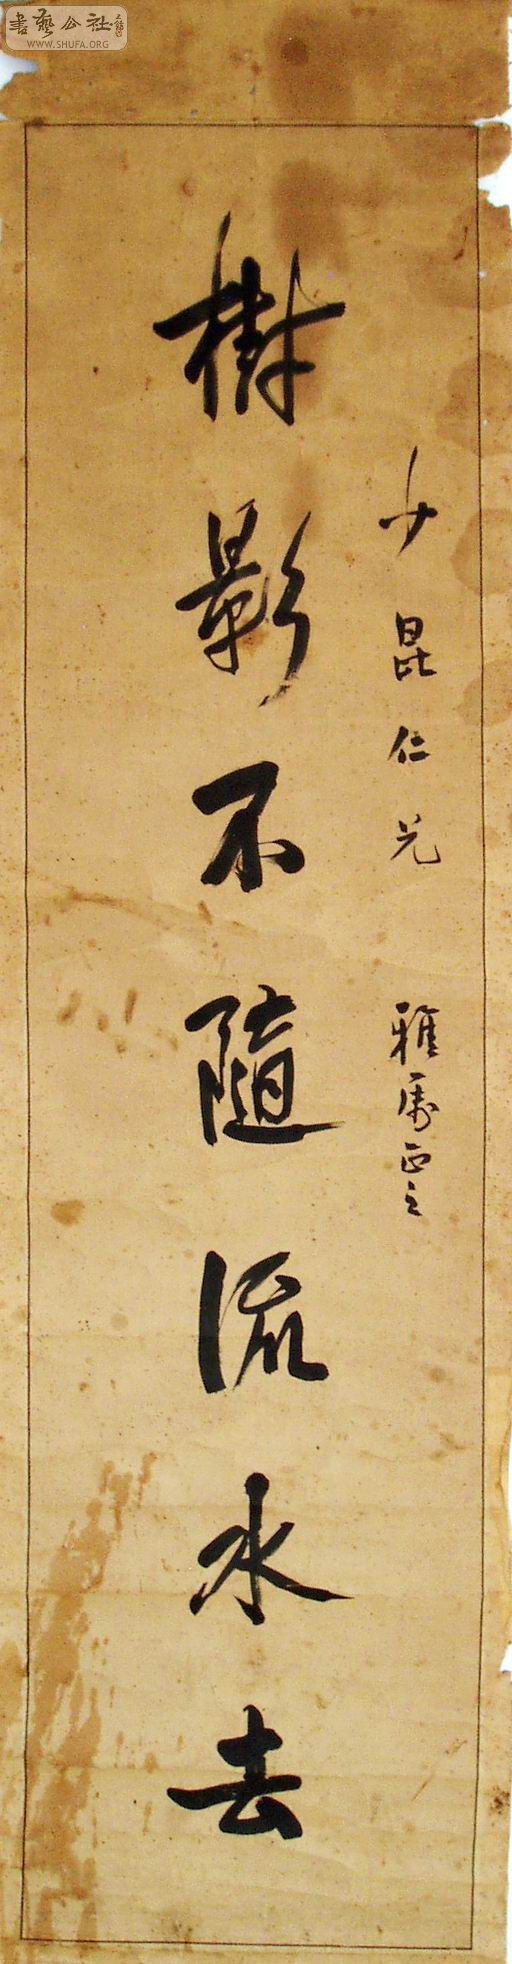 書藝公社
WWW.SHUFA.ORG
少昆仁兄 雅属正之
樹影不隨流水去